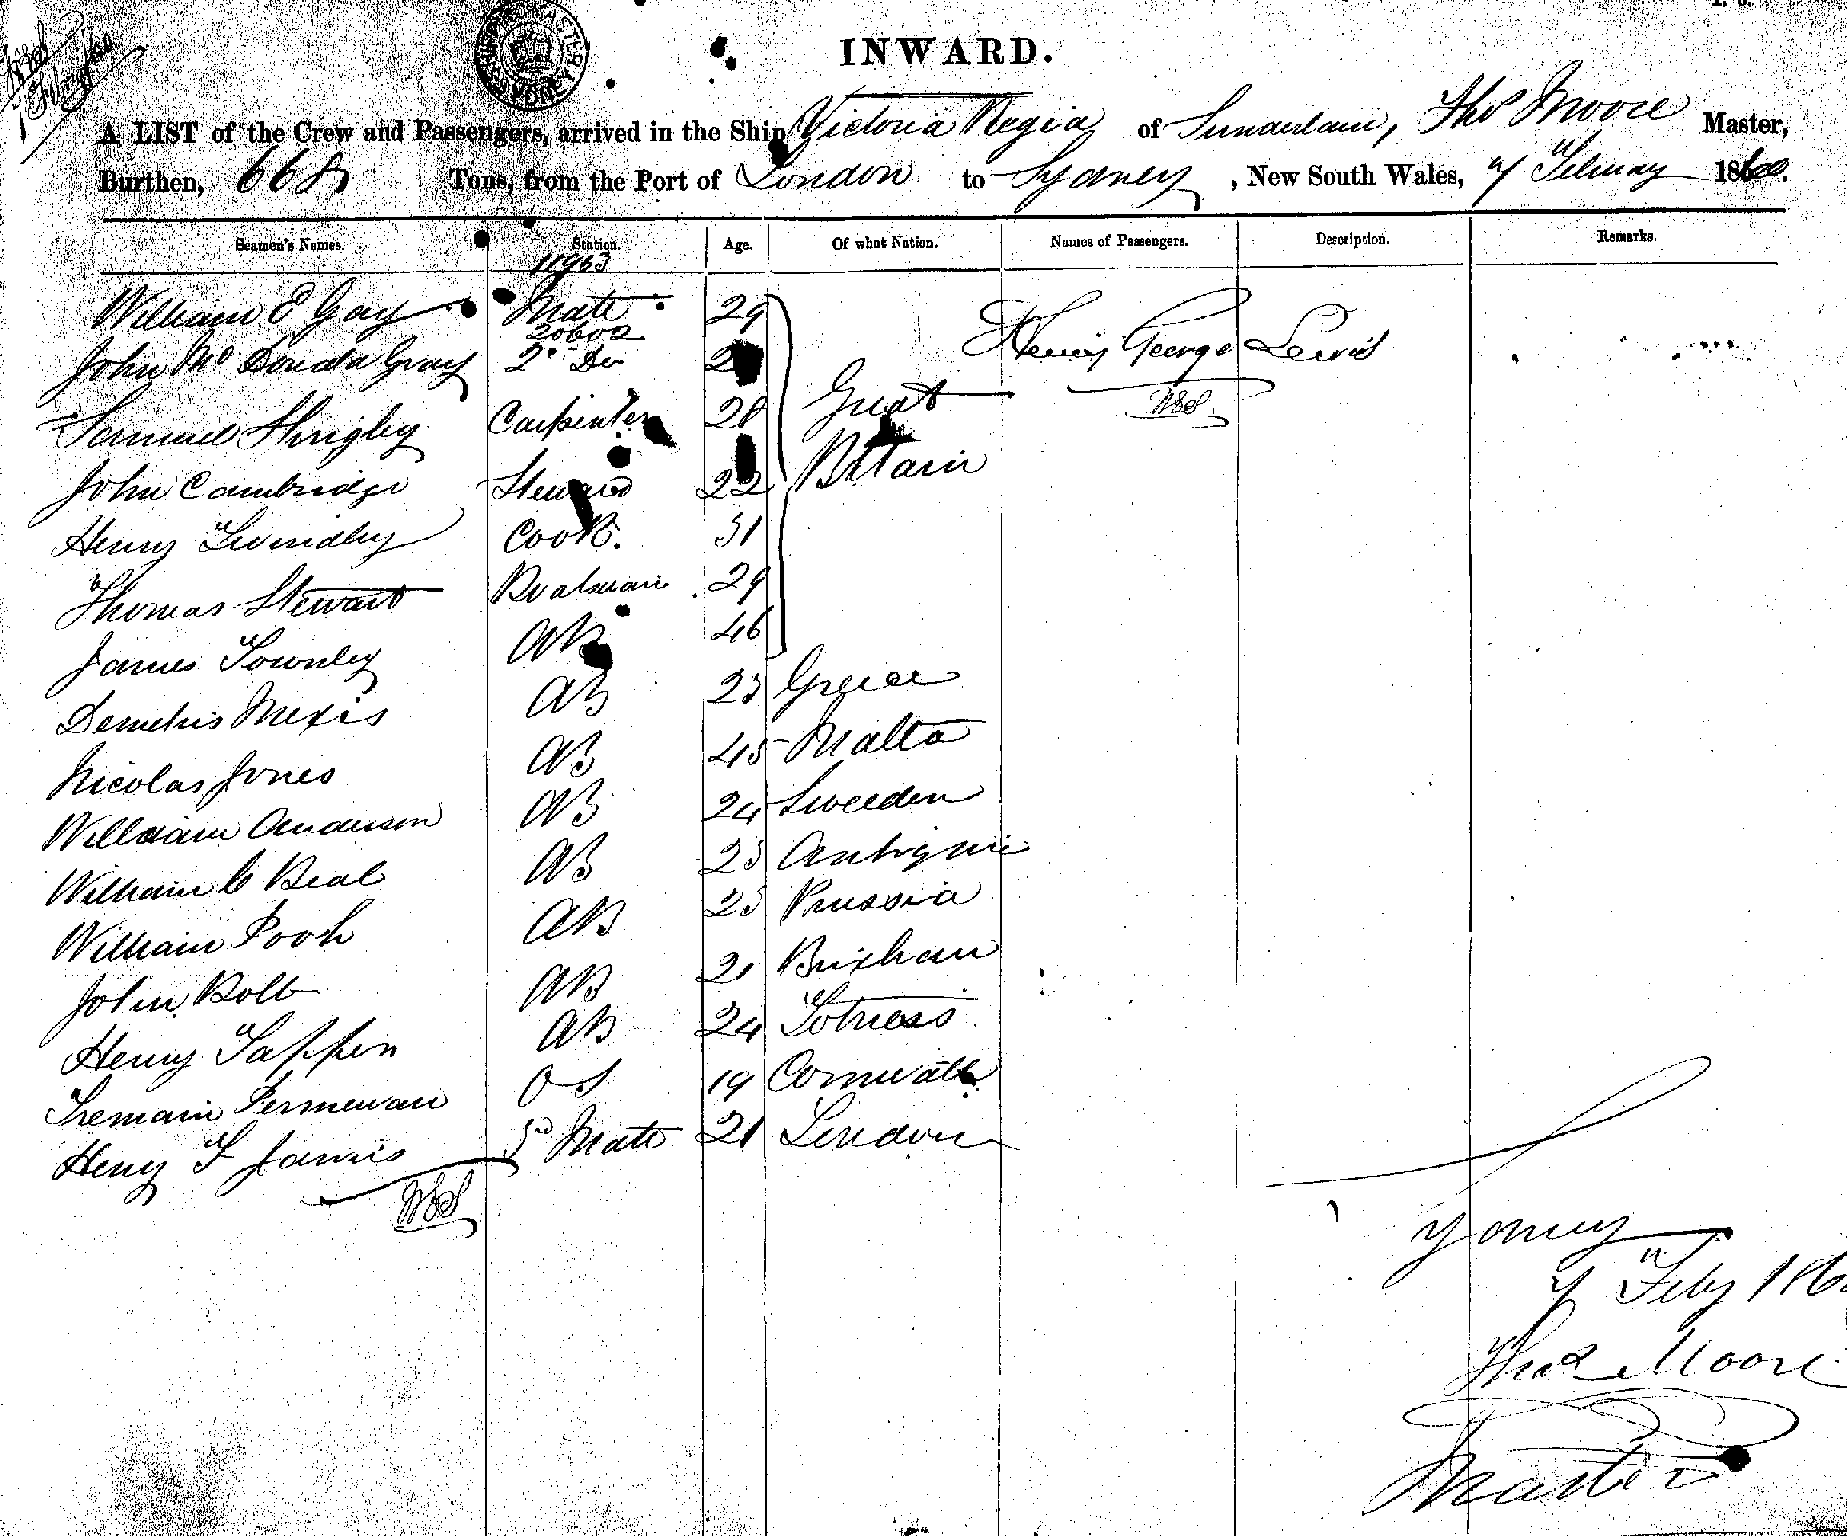 INWARD.
A LIST of the Crew and Passengers, arrived in the Ship Victoria Regia of Sunderland, Thos Moore Master,
Burthen, 668 Tons, from the Port of London to Sydney, New South Wales, 1860.
Seamen's Names. Station. Age. Of what Nation. Names of Passengers. Description. Remarks.
11963
William E Gay Mate 29
20602
John Mc Donda Gray 2d Do Henry George Lewis
Samuel Shrigley Carpenter 28 Great
John Cambridge Steward 22 Britain
Henry Cook. 31
Thomas Stewart Boatswain 29
James Townley AB 46
Demetris Mexis AB 23 Greece
Nicolas Jones AB 45 Malta
William Anderson AB 24 Sweden
William C Beal AB 23
William Pooh AB 23 Prussia
John Bolt AB 21 Brixham
Henry Tappen AB 24 Totness
Tremain Permewan OS 19 Cornwall
Henry T James 3rd Mate 21 London
Feby 186
Thos Moore
Master